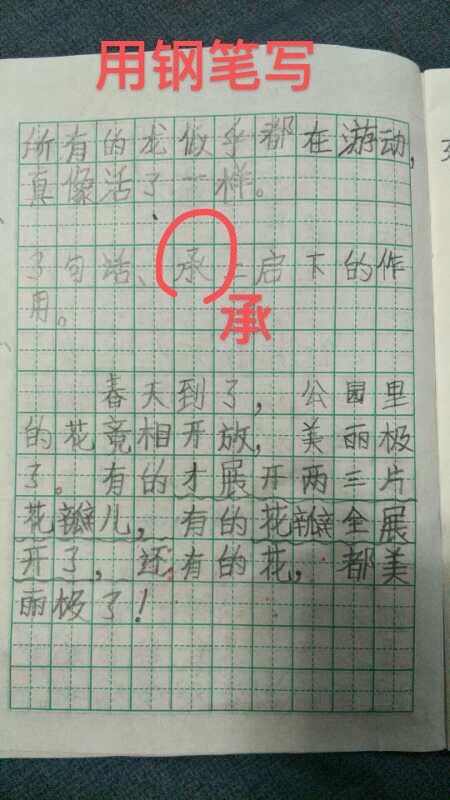 用钢笔写
所有的龙似乎都在游动,
真像活了一样。
了句话、承上启下的作
承
用。
春天到了，公园里
的花竟相开放，美丽极
了。有的才展开两三片
花瓣儿，有的花瓣全展
开了，还有的花，都美
丽极了！